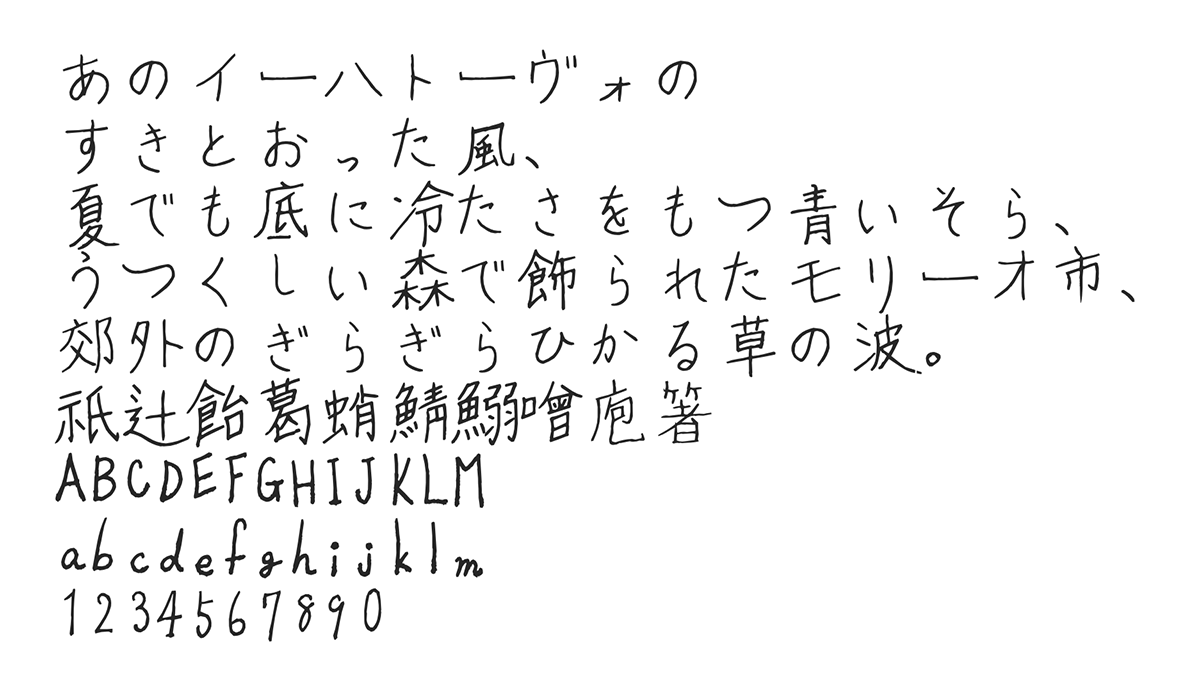 あのイーハトーヴォの
すきとおった風、
夏でも底に冷たさをもつ青いそら、
うつくしい森で飾られたモリーオ市、
郊外のぎらぎらひかる草の波。
祇辻飴葛蛸鯖鰯噌庖箸
ABCDEFGHIJKLM
abcdefghijklm
1234567890